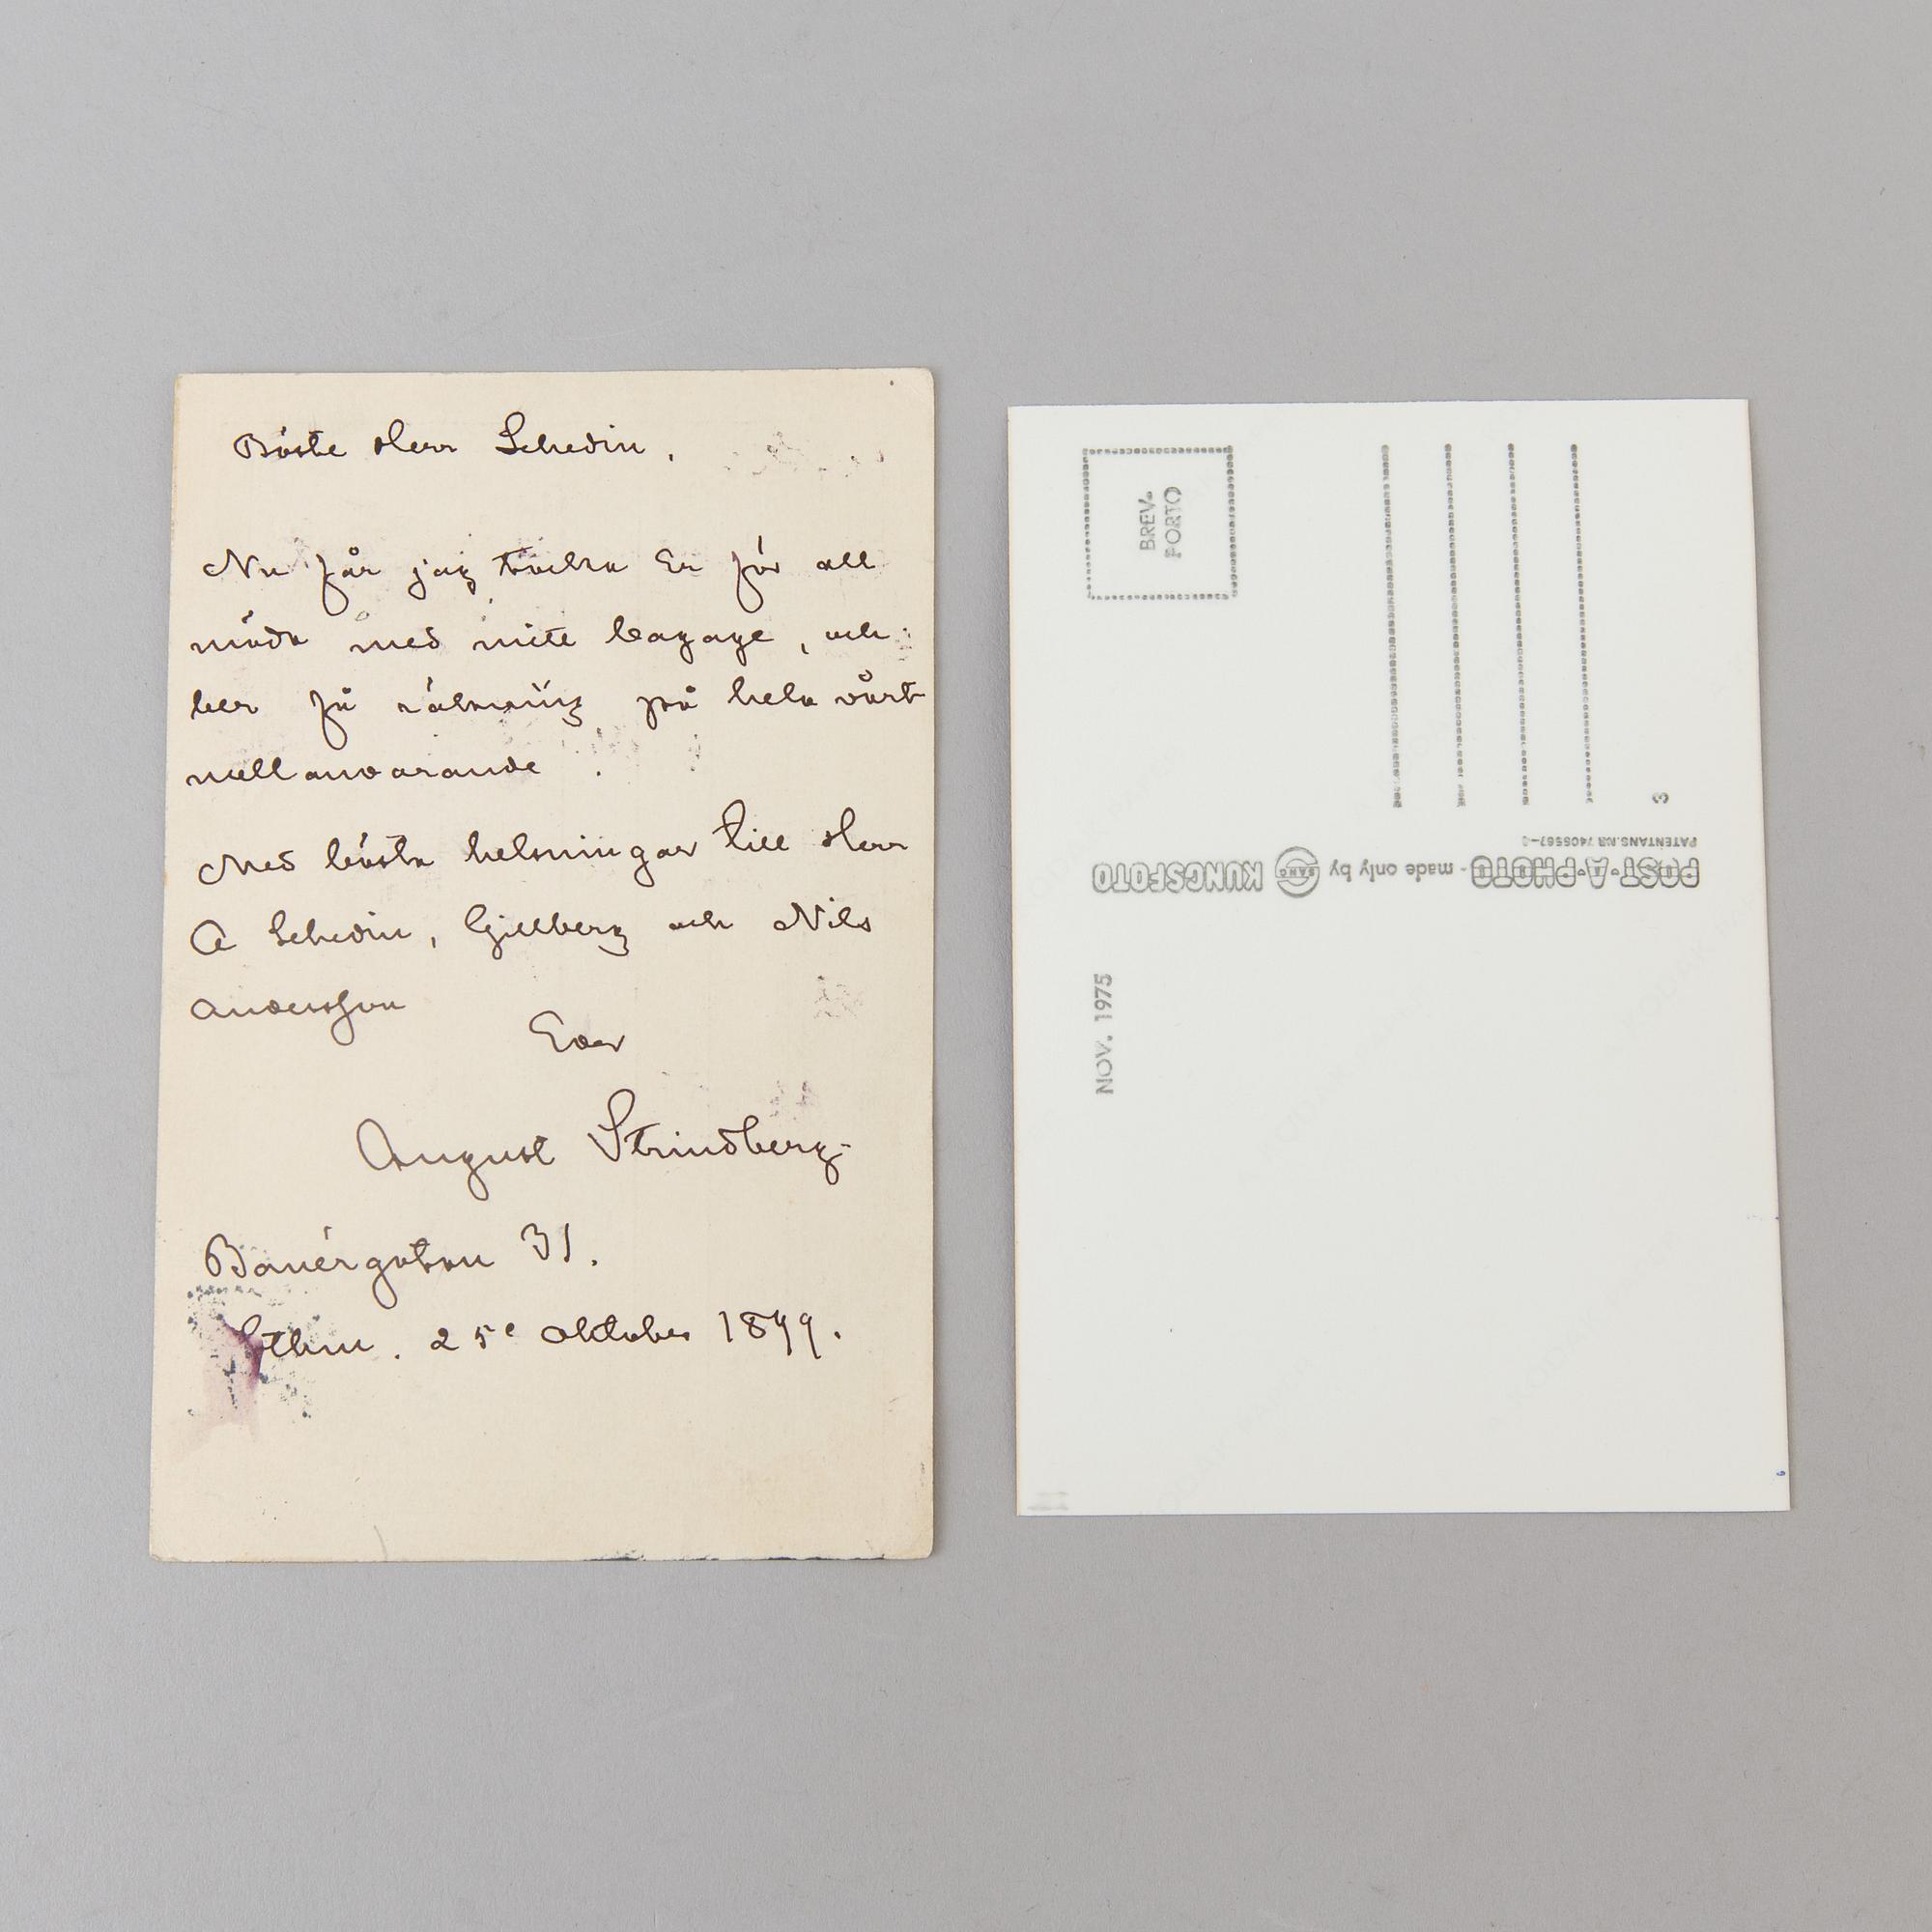 Bäste Herr Schedin,
Nu får jag tacka Er för all
möda med mitt bagage, och
ber få räkning på hela vårt
mellanvarande.
Med bästa helsningar till Herr
A Schedin, Gillberg och Nils
Andersson
Eder
August Strindberg.
Banérgatan 31.
Sthm. 25e Oktober 1899.
BREV-
PORTO
3
PATENTANS.NR 7405567-
POST·A·PHOTO - made only by SÅNG KUNGSFOTO
NOV. 1975